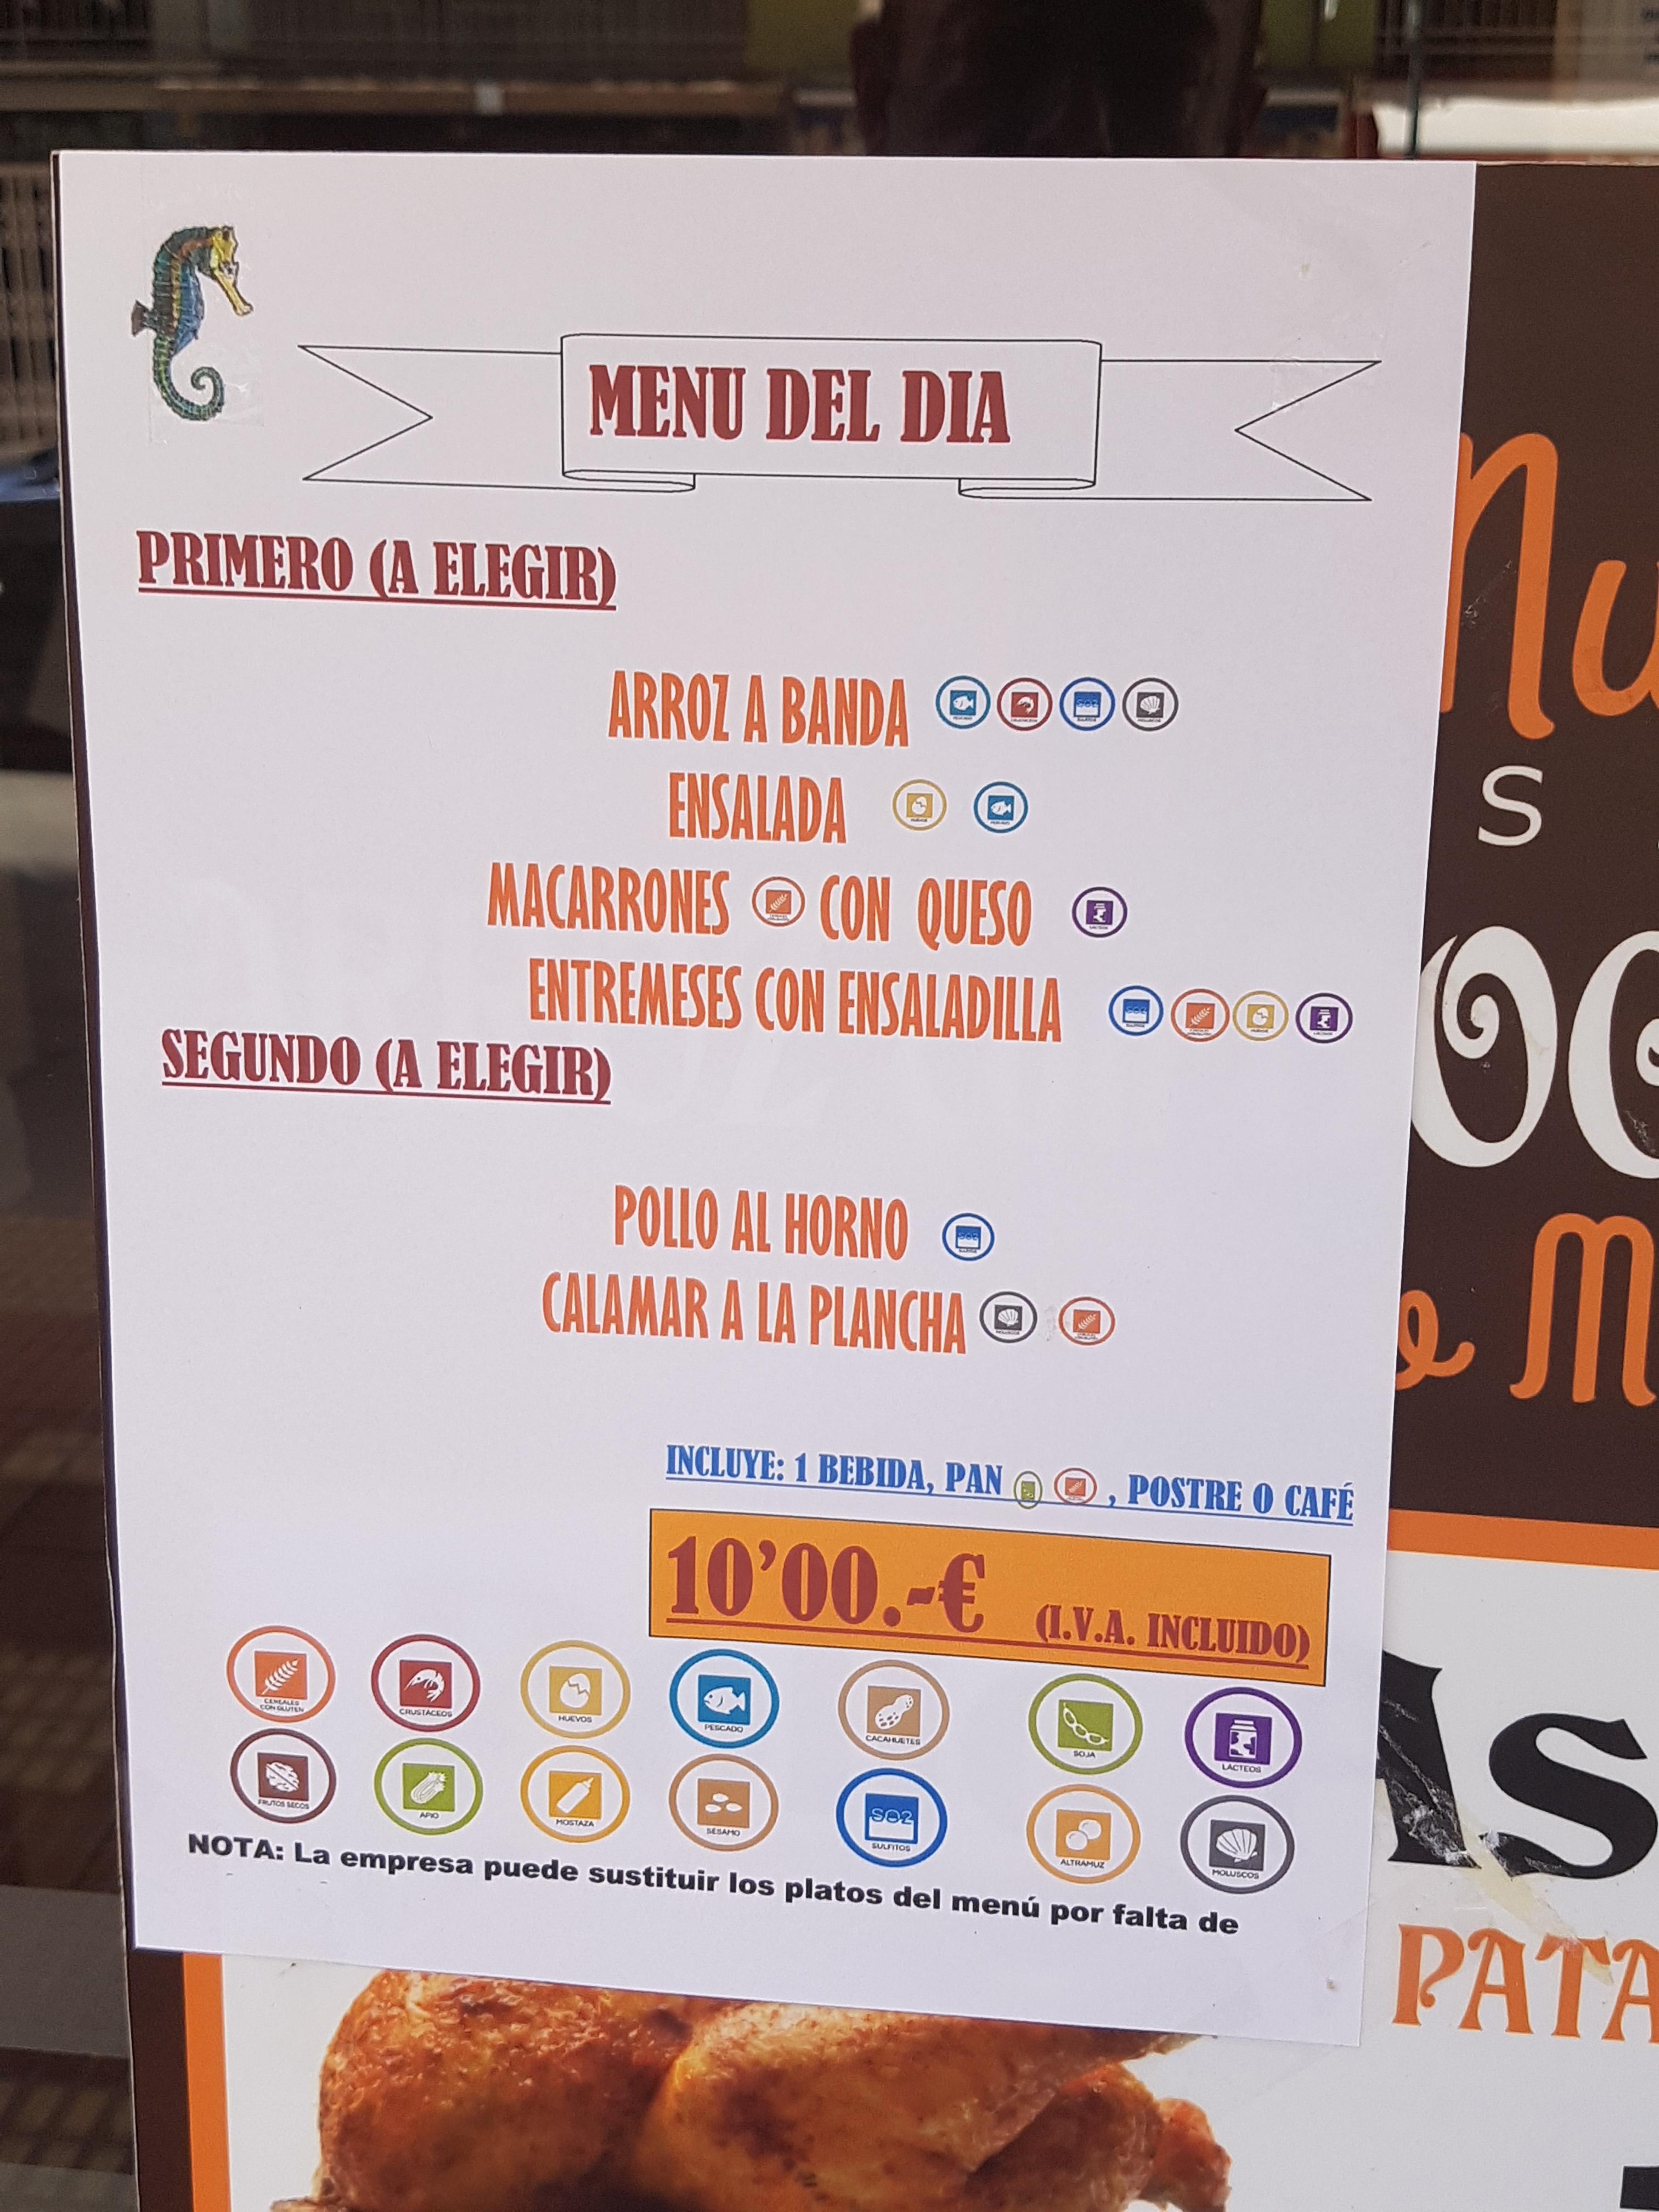 MENU DEL DIA
PRIMERO (A ELEGIR)
ARROZ A BANDA
ENSALADA
MACARRONES CON QUESO
ENTREMESES CON ENSALADILLA
SEGUNDO (A ELEGIR)
POLLO AL HORNO
CALAMAR A LA PLANCHA
INCLUYE: 1 BEBIDA, PAN , POSTRE O CAFÉ
10’00.-€ (I.V.A. INCLUIDO)
CEREALES CON GLUTEN
CRUSTÁCEOS
HUEVOS
PESCADO
CACAHUETES
SOJA
LÁCTEOS
FRUTOS SECOS
APIO
MOSTAZA
SÉSAMO
SO2
SULFITOS
ALTRAMUZ
MOLUSCOS
NOTA: La empresa puede sustituir los platos del menú por falta de
PATA